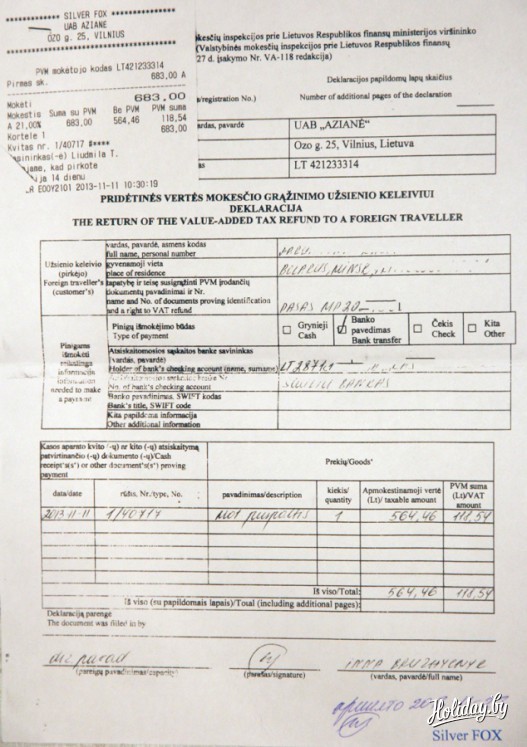 SILVER FOX
UAB AZIANE
OZO g. 25, VILNIUS
PVM mokėtojo kodas LT421233314
Pirmas sk. 683,00 A
Mokėti 683,00
Mokestis Suma su PVM Be PVM PVM suma
A 21,00% 683,00 564,46 118,54
Kortele 1 683,00
Kvitas nr. 1/40717 #****
Liudmila T.
kad pirkote
14 dienu
EOOY2101 2013-11-11 10:30:19
mokesčių inspekcijos prie Lietuvos Respublikos finansų ministerijos viršininko
(Valstybinės mokesčių inspekcijos prie Lietuvos Respublikos finansų
27 d. įsakymo Nr. VA-118 redakcija)
Deklaracijos papildomų lapų skaičius
/registration No.) Number of additional pages of the declaration
vardas, pavardė UAB „AZIANĖ"
Ozo g. 25, Vilnius, Lietuva
LT 421233314
PRIDĖTINĖS VERTĖS MOKESČIO GRĄŽINIMO UŽSIENIO KELEIVIUI
DEKLARACIJA
THE RETURN OF THE VALUE-ADDED TAX REFUND TO A FOREIGN TRAVELLER
Užsienio keleivio
(pirkėjo)
Foreign traveller's
(customer's)
vardas, pavardė, asmens kodas
full name, personal number
gyvenamoji vieta
place of residence
MINSK
tapatybę ir teisę susigrąžinti PVM įrodančių
dokumentų pavadinimai ir Nr.
name and No. of documents proving identification
and a right to VAT refund
PASAS MP20
Pinigams
išmokėti
reikalinga
informacija
information
needed to make
a payment
Pinigų išmokėjimo būdas
Type of payment
Grynieji
Cash
Banko
pavedimas
Bank transfer
Čekis
Check
Kita
Other
Atsiskaitomosios sąskaitos banke savininkas
(vardas, pavardė)
Holder of bank's checking account (name, surname)
No. of bank's checking account
Banko pavadinimas, SWIFT kodas
Bank's title, SWIFT code
Kita papildoma informacija
Other additional information
Kasos aparato kvito (-ų) ar kito (-ų) atsiskaitymą
patvirtinančio (-ų) dokumento (-ų)/Cash
receipt's(s') or other document's(s') proving
payment
Prekių/Goods'
data/date rūšis, Nr./type, No. pavadinimas/description kiekis/
quantity Apmokestinamoji vertė
(Lt)/ taxable amount PVM suma
(Lt)/VAT
amount
2013-11-11 1/40717 1 564,46 118,54
Iš viso/Total: 564,46 118,54
Iš viso (su papildomais lapais)/Total (including additional pages):
Deklaraciją parengė
The document was filled in by
(pareigų pavadinimas/capacity) (parašas/signature) (vardas, pavardė/full name)
Holiday.by
Silver FOX